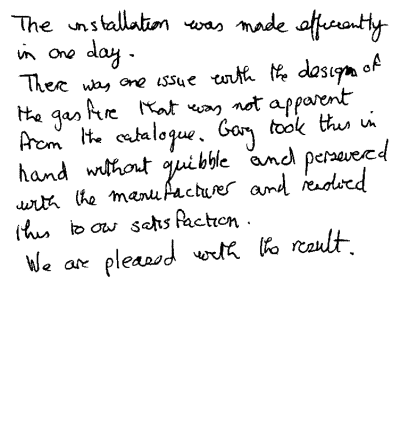 The installation was made efficiently
in one day.
There was one issue with the design of
the gas fire that was not apparent
from the catalogue. Gary took this in
hand without quibble and persevered
with the manufacturer and resolved
this to our satisfaction.
We are pleased with the result.